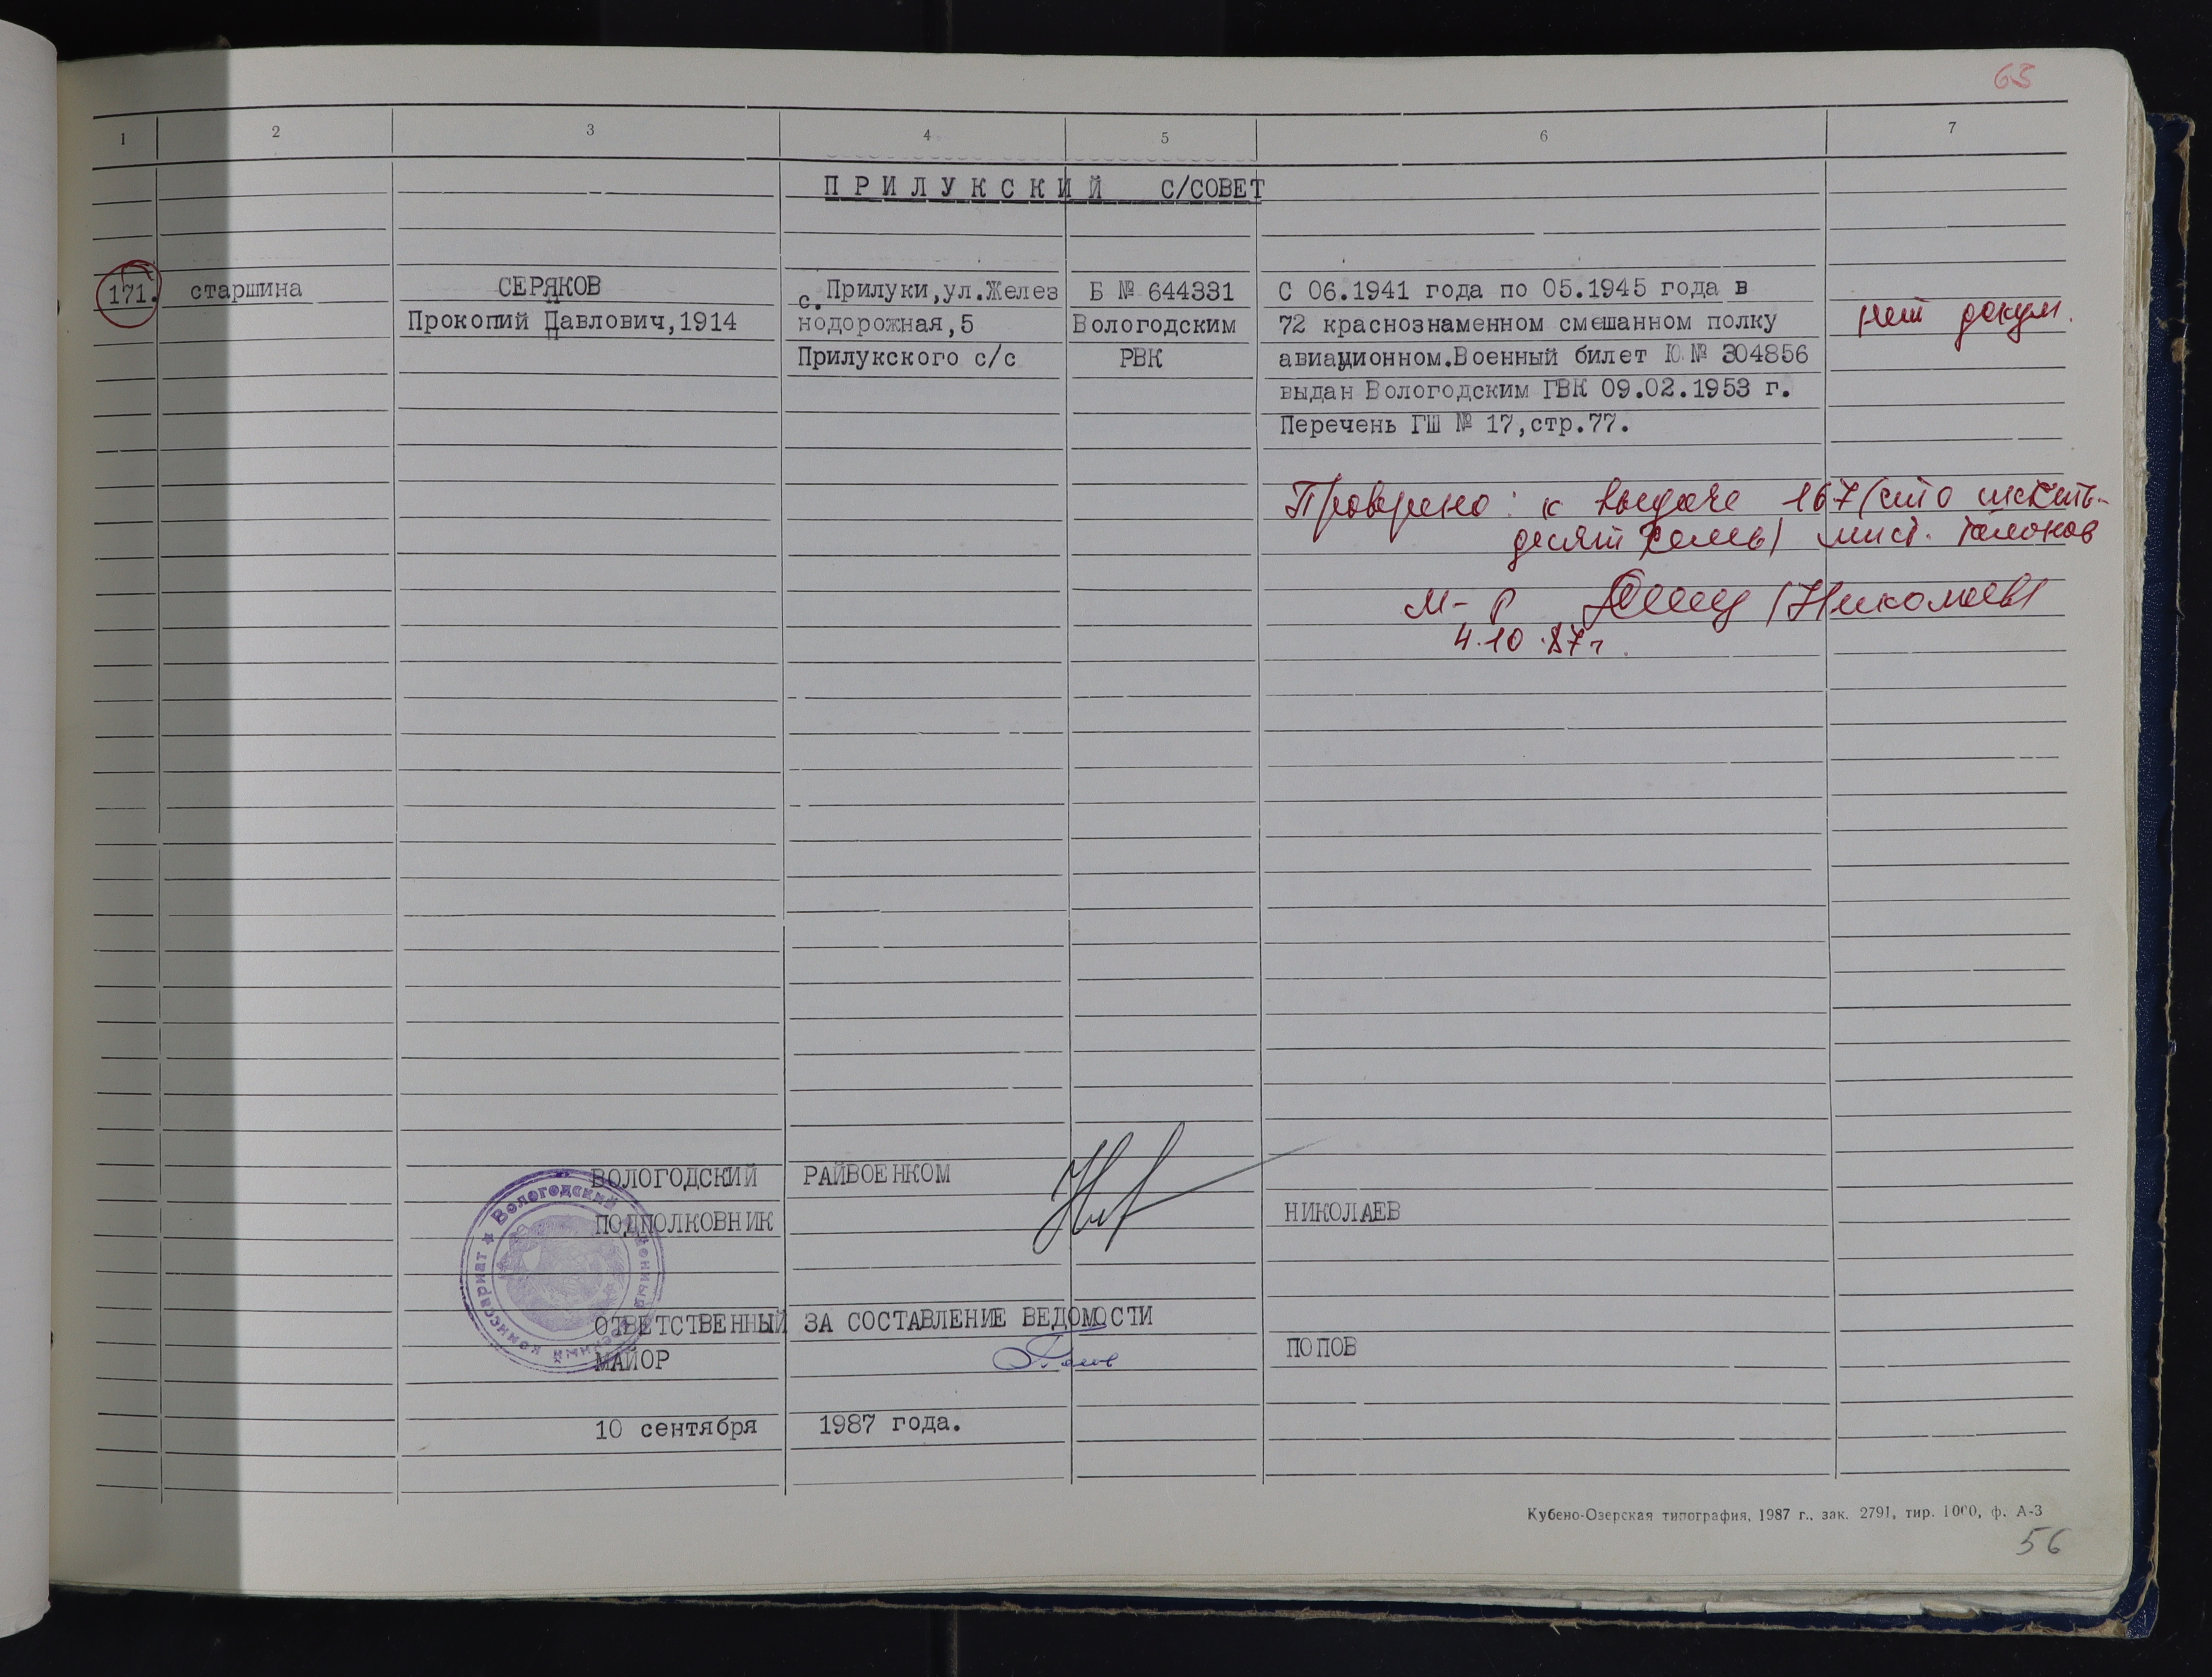 63
1 2 3 4 5 6 7
ПРИЛУКСКИЙ С/СОВЕТ
171. старшина СЕРЯКОВ с.Прилуки,ул.Желез Б № 644331 С 06.1941 года по 05.1945 года в
Прокопий Павлович,1914 нодорожная,5 Вологодским 72 краснознаменном смешанном полку нет докум.
Прилукского с/с РВК авиационном.Военный билет Ю № 304856
выдан Вологодским ГВК 09.02.1953 г.
Перечень ГШ № 17,стр.77.
Проверено: к выдаче 167 (сто шестьдесят
семь) лист. талонов
м-р (Николаев)
4.10.87г.
ВОЛОГОДСКИЙ РАЙВОЕНКОМ
ПОДПОЛКОВНИК НИКОЛАЕВ
Вологодский военный комиссариат
ОТВЕТСТВЕННЫЙ ЗА СОСТАВЛЕНИЕ ВЕДОМОСТИ
МАЙОР ПОПОВ
10 сентября 1987 года.
Кубено-Озерская типография, 1987 г., зак. 2791, тир. 1000, ф. А-3
56